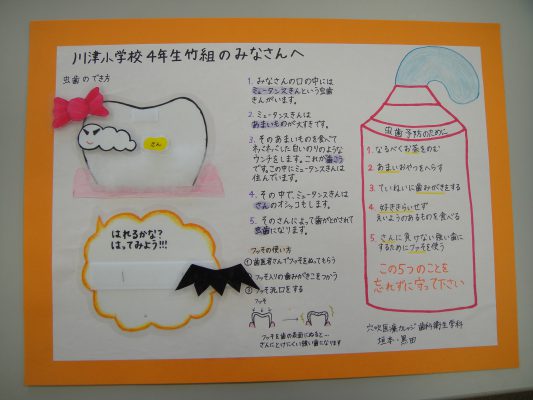 川津小学校4年生竹組のみなさんへ
虫歯のでき方
さん
はれるかな?
はってみよう!!!
1. みなさんの口の中には
ミュータンスきんという虫歯
きんがいます。
2. ミュータンスきんは
あまいものが大すきです。
3. そのあまいものを食べて
ねっこした白いのりのような
ウンチをします。これが歯こう
です。この中にミュータンスきんは
住んでいます。
4. その中で、ミュータンスきんは
さんのオシッコもします。
5. そのさんによって歯がとかされて
虫歯になります。
フッ素の使い方
① 歯医者さんでフッ素をぬってもらう
② フッ素入りの歯みがきこをつかう
③ フッ素洗口をする
フッ素
フッ素を歯の表面にぬると…
さんにとけにくい強い歯になります
虫歯予防のために
1. なるべくお茶をのむ
2. あまいおやつをへらす
3. ていねいに歯みがきをする
4. 好ききらいせず
えいようのあるものを食べる
5. さんに負けない強い歯に
するためにフッ素を使う
この5つのことを
忘れずに守って下さい
穴吹医療カレッジ 歯科衛生学科
垣本・黒田